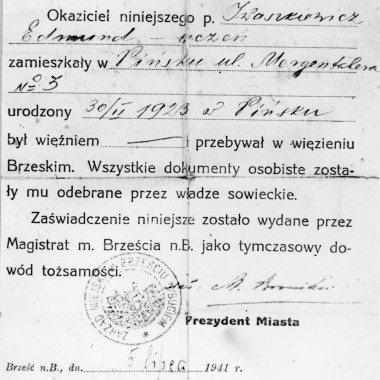 Okaziciel niniejszego p. Iwaszkiewicz
Edmund – uczeń
zamieszkały w Pińsku ul. Morgentalera
№ 3
urodzony 30/II 1923 w Pińsku
był więźniem — i przebywał w więzieniu
Brzeskim. Wszystkie dokumenty osobiste zosta-
ły mu odebrane przez władze sowieckie.
Zaświadczenie niniejsze zostało wydane przez
Magistrat m. Brześcia n.B. jako tymczasowy do-
wód tożsamości.
ZARZĄD MIEJSKI W BRZEŚCIU n/BUGIEM
Prezydent Miasta
Brześć n.B., dn. 5 lipca 1941 r.